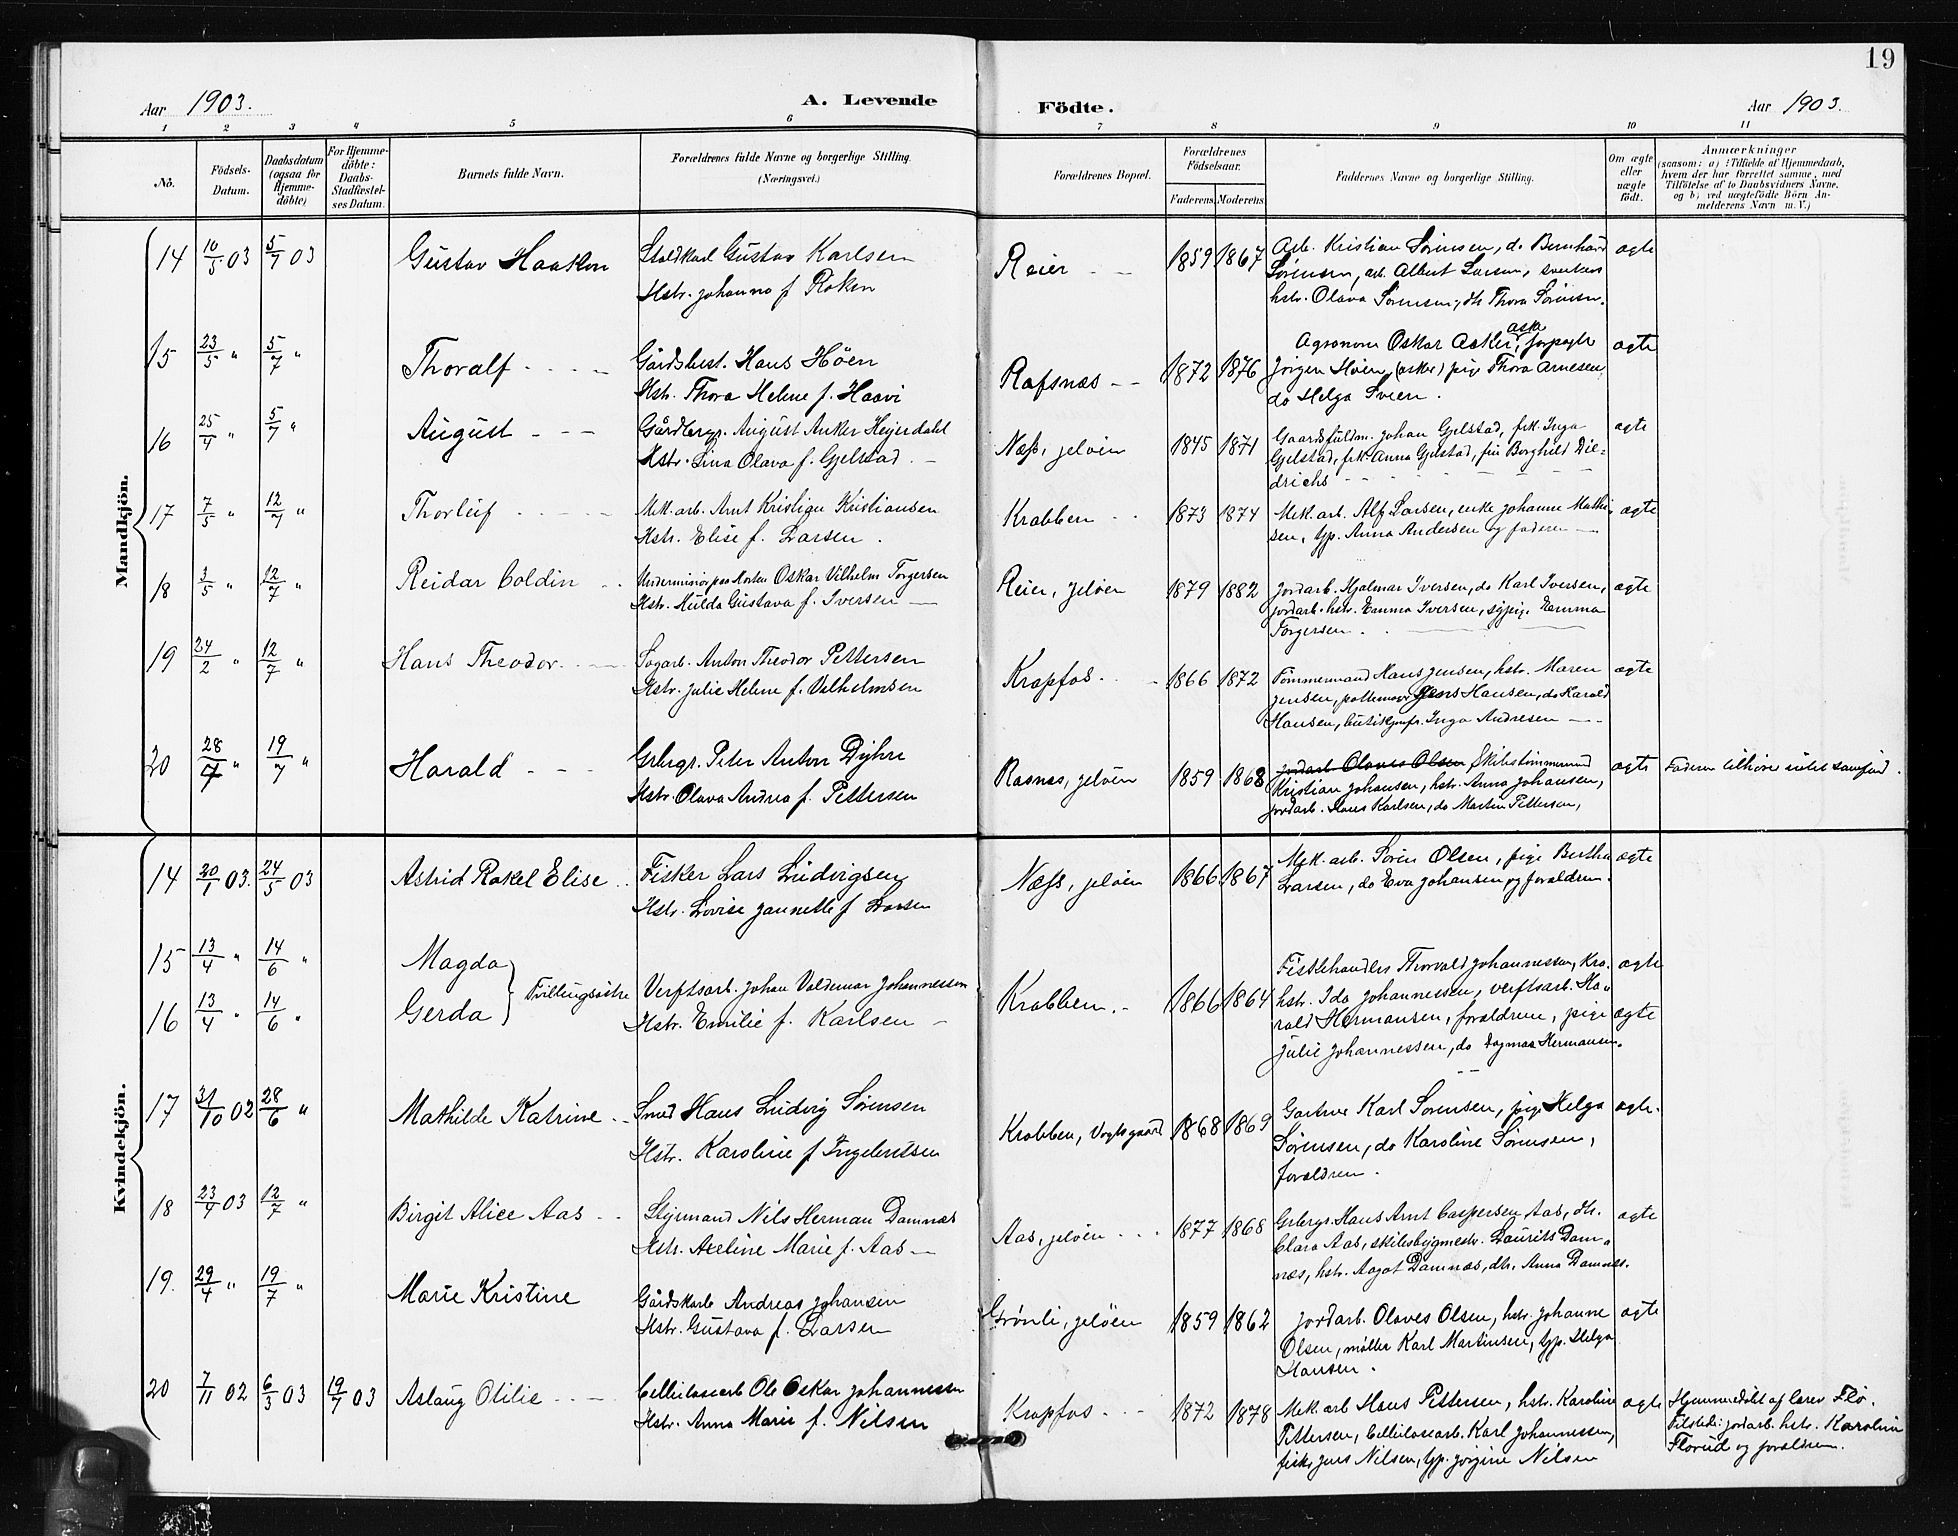 19
Aar 1903.
A. Levende
Födte.
Aar 1903.
1 2 3 4 5 6 7 8 9 10 11
No.
Födsels-Datum.
Daabsdatum (ogsaa for Hjemme-döbte)
For Hjemme-döbte: Daabs-Stadfæstel-ses Datum.
Barnets fulde Navn.
Forældrenes fulde Navne og borgerlige Stilling.
(Næringsvei.)
Forældrenes Bopæl.
Forældrenes Födselsaar.
Faderens Moderens
Faddernes Navne og borgerlige Stilling.
Om ægte eller uægte födt.
Anmærkninger
(saasom: a) i Tilfælde af Hjemmedaab,
hvem der har forrettet samme, med
Tilföielse af to Daabsvidners Navne,
og b) ved uægtefödte Börn An-
melderens Navn m. V.)
Mandkjön.
14 10/5 03 5/7 03 Gustav Haakon
Staldkarl Gustav Karlsen
Hstr. Johanna f. Roken
Reier - - 1859 1867
Arb. Kristian Sørensen, do Bernhard
Sørensen, arb. Albert Larsen,
hstr. Olava Sørensen, do Thora Sørensen.
ægte
15 23/5 " 5/7 " Thoralf - - - -
Gårdsbest. Hans Höen
Hstr. Thora Helene f. Haavi
Rafsnæs - - 1872 1876
Agronom Oskar Asker, forpagter
Jörgen Höien, (Asker) pige Thora Arnesen
do Helga Sveen.
ægte
16 25/4 " 5/7 " August - - -
Gårdbrgr. August Anker Hejerdahl
Hstr. Lina Olava f. Gjelstad. -
Næss, Jelöen 1845 1871
Gaardsfuldm. Johan Gjelstad, frk. Inga
Gjelstad, frk. Anna Gjelstad, frk Borghild Die-
drichs - - - - -
ægte
17 7/5 " 12/7 " Thorleif - - - -
Mek. arb. Arnt Kristian Kristiansen
Hstr. Elise f. Larsen.
Krabben - - 1873 1874
Mek. arb. Alf Larsen, enke Johanne Mathi-
sen, typ. Anna Andersen og faderen -
ægte
18 3/5 " 12/7 " Reidar Coldin - -
Underminör paa Horten Oskar Vilhelm Torgersen
Hstr. Hulda Gustava f. Iversen -
Reier, Jelöen 1879 1882
Jordarb. Hjalmar Iversen, do Karl Iversen,
jordarb. hstr. Emma Iversen, sypige Emma
Torgersen. -
ægte
19 24/2 " 12/7 " Hans Theodor. - -
Sagarb. Anton Theodor Pettersen
Hstr. Julie Helene f. Vilhelmsen
Krapfos - - 1866 1872
Tömmermand Hans Jensen, hstr. Maren
Jensen, pottemager Jens Hansen, do Harald
Hansen, butikjomfr. Inga Andresen - -
ægte
20 28/4 " 19/7 " Harald - - -
Grbrgr. Peter Anton Dyhre
Hstr. Olava Andrea f. Pettersen
Rasnæs, Jelöen 1859 1868
Jordarb. Olaves Olsen Skibstömmermand
Kristian Johansen, hstr. Anna Johansen,
jordarb. Hans Karlsen, do Martin Pettersen,
ægte
Faderen tilhører intet samfund.
Kvindekjön.
14 20/1 03. 24/5 03 Astrid Rakel Elise -
Fisker Lars Ludvigsen
Hstr. Lovise Jannette f Larsen
Næss, Jelöen 1866 1867
Mek. arb. Sören Olsen, pige Bertha
Larsen, do Eva Johansen og forældren.
ægte
15 13/4 " 14/6 " Magda
16 13/4 " 14/6 " Gerda
Tvillingsöstre
Verftsarb. Johan Valdemar Johannessen
Hstr. Emilie f. Karlsen -
Krabben. - 1866 1864
Fiskehandler Thorvald Johannessen, Kra.
hstr. Ida Johannessen, verftsarb. Ha-
rald Hermansen, forældrene, pige
Julie Johannessen, do Dagmar Hermansen.
ægte
ægte
17 31/10 02 28/6 " Mathilde Katrine -
Smed Hans Ludvig Sørensen
Hstr. Karoline f Ingebretsen
Krabben, Vogtsgaard 1868 1869
Gartner Karl Sørensen, pige Helga
Sørensen, do Karoline Sørensen,
forældren.
ægte.
18 23/4 03 12/7 " Birgit Alice Aas - -
Styrmand Nils Herman Damnæs
Hstr. Axeline Marie f. Aas -
Aas, Jelöen - - - 1877 1868
Grbrgr. Hans Arnt Caspersen Aas, dtr.
Clara Aas, skibsbygmestr. Laurits Dam-
næs, hstr. Aagot Damnæs, dtr. Anna Damnæs.
ægte
19. 29/4 " 19/7 " Marie Kristine
Gårdskarl Andreas Johansen
Hstr. Gustava f. Larsen
Grönli, Jelöen 1859 1862
Jordarb. Olaves Olsen, hstr. Johanne
Olsen, möller Karl Martinsen, typ. Helga
Hansen.
ægte
20 7/11 02 6/3 03 19/7 03 Aslaug Otilie - - -
Cellulosearb Ole Oskar Johannessen
Hstr. Anna Marie f. Nilsen
Krapfos - - - 1872 1878
Mek. arb Hans Pettersen, hstr. Karoline
Pettersen, Cellulosearb. Karl Johannessen,
Jens Nilsen, typ. Jørgine Nilsen
ægte
Hjemmedöbt af lærer Flö.
Tilstede: jordarb. hstr. Karoline
Florud og forældrene.